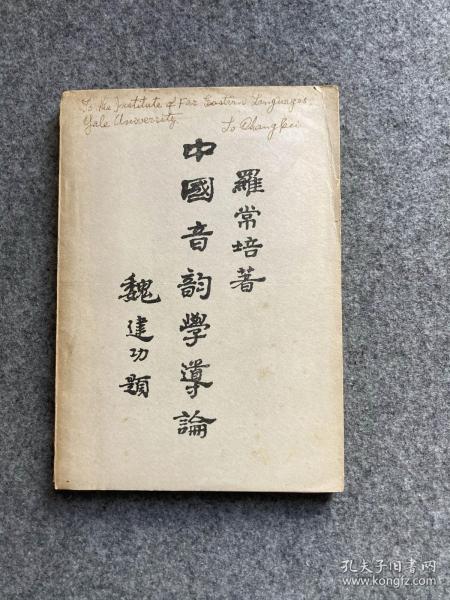 To the Institute of Far Eastern Languages,
Yale University.
Lo Changpei
羅常培著
中國音韵學導論
魏建功題
孔夫子旧书网
www.kongfz.com